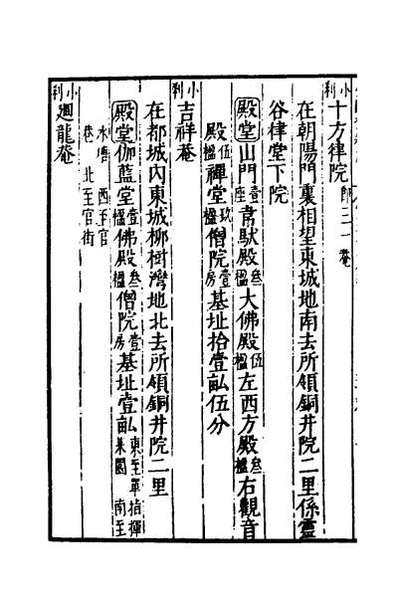 小刹 十方律院 即三一菴
在朝陽門裏相望東城地南去所領銅井院二里係靈
谷律堂下院
殿堂 山門壹座 韋馱殿叁楹 大佛殿伍楹 左西方殿叁楹 右觀音
殿伍楹 禪堂玖楹 僧院壹房 基址拾壹畝伍分
小刹 吉祥菴
在都城內東城柳樹灣地北去所領銅井院二里
殿堂 伽藍堂壹楹 佛殿叁楹 僧院壹房 基址壹畝 東至軍指揮菓園 南至
水塘 西至官巷 北至官街
小刹 廻龍菴